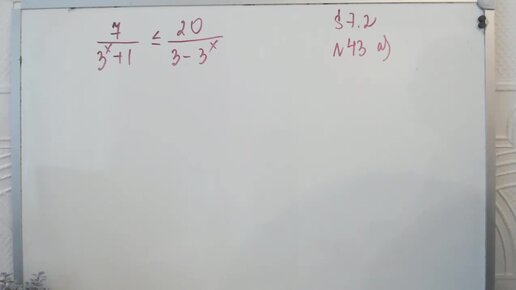 7/(3^x+1) ≤ 20/(3-3^x)
§7.2
№43 а)